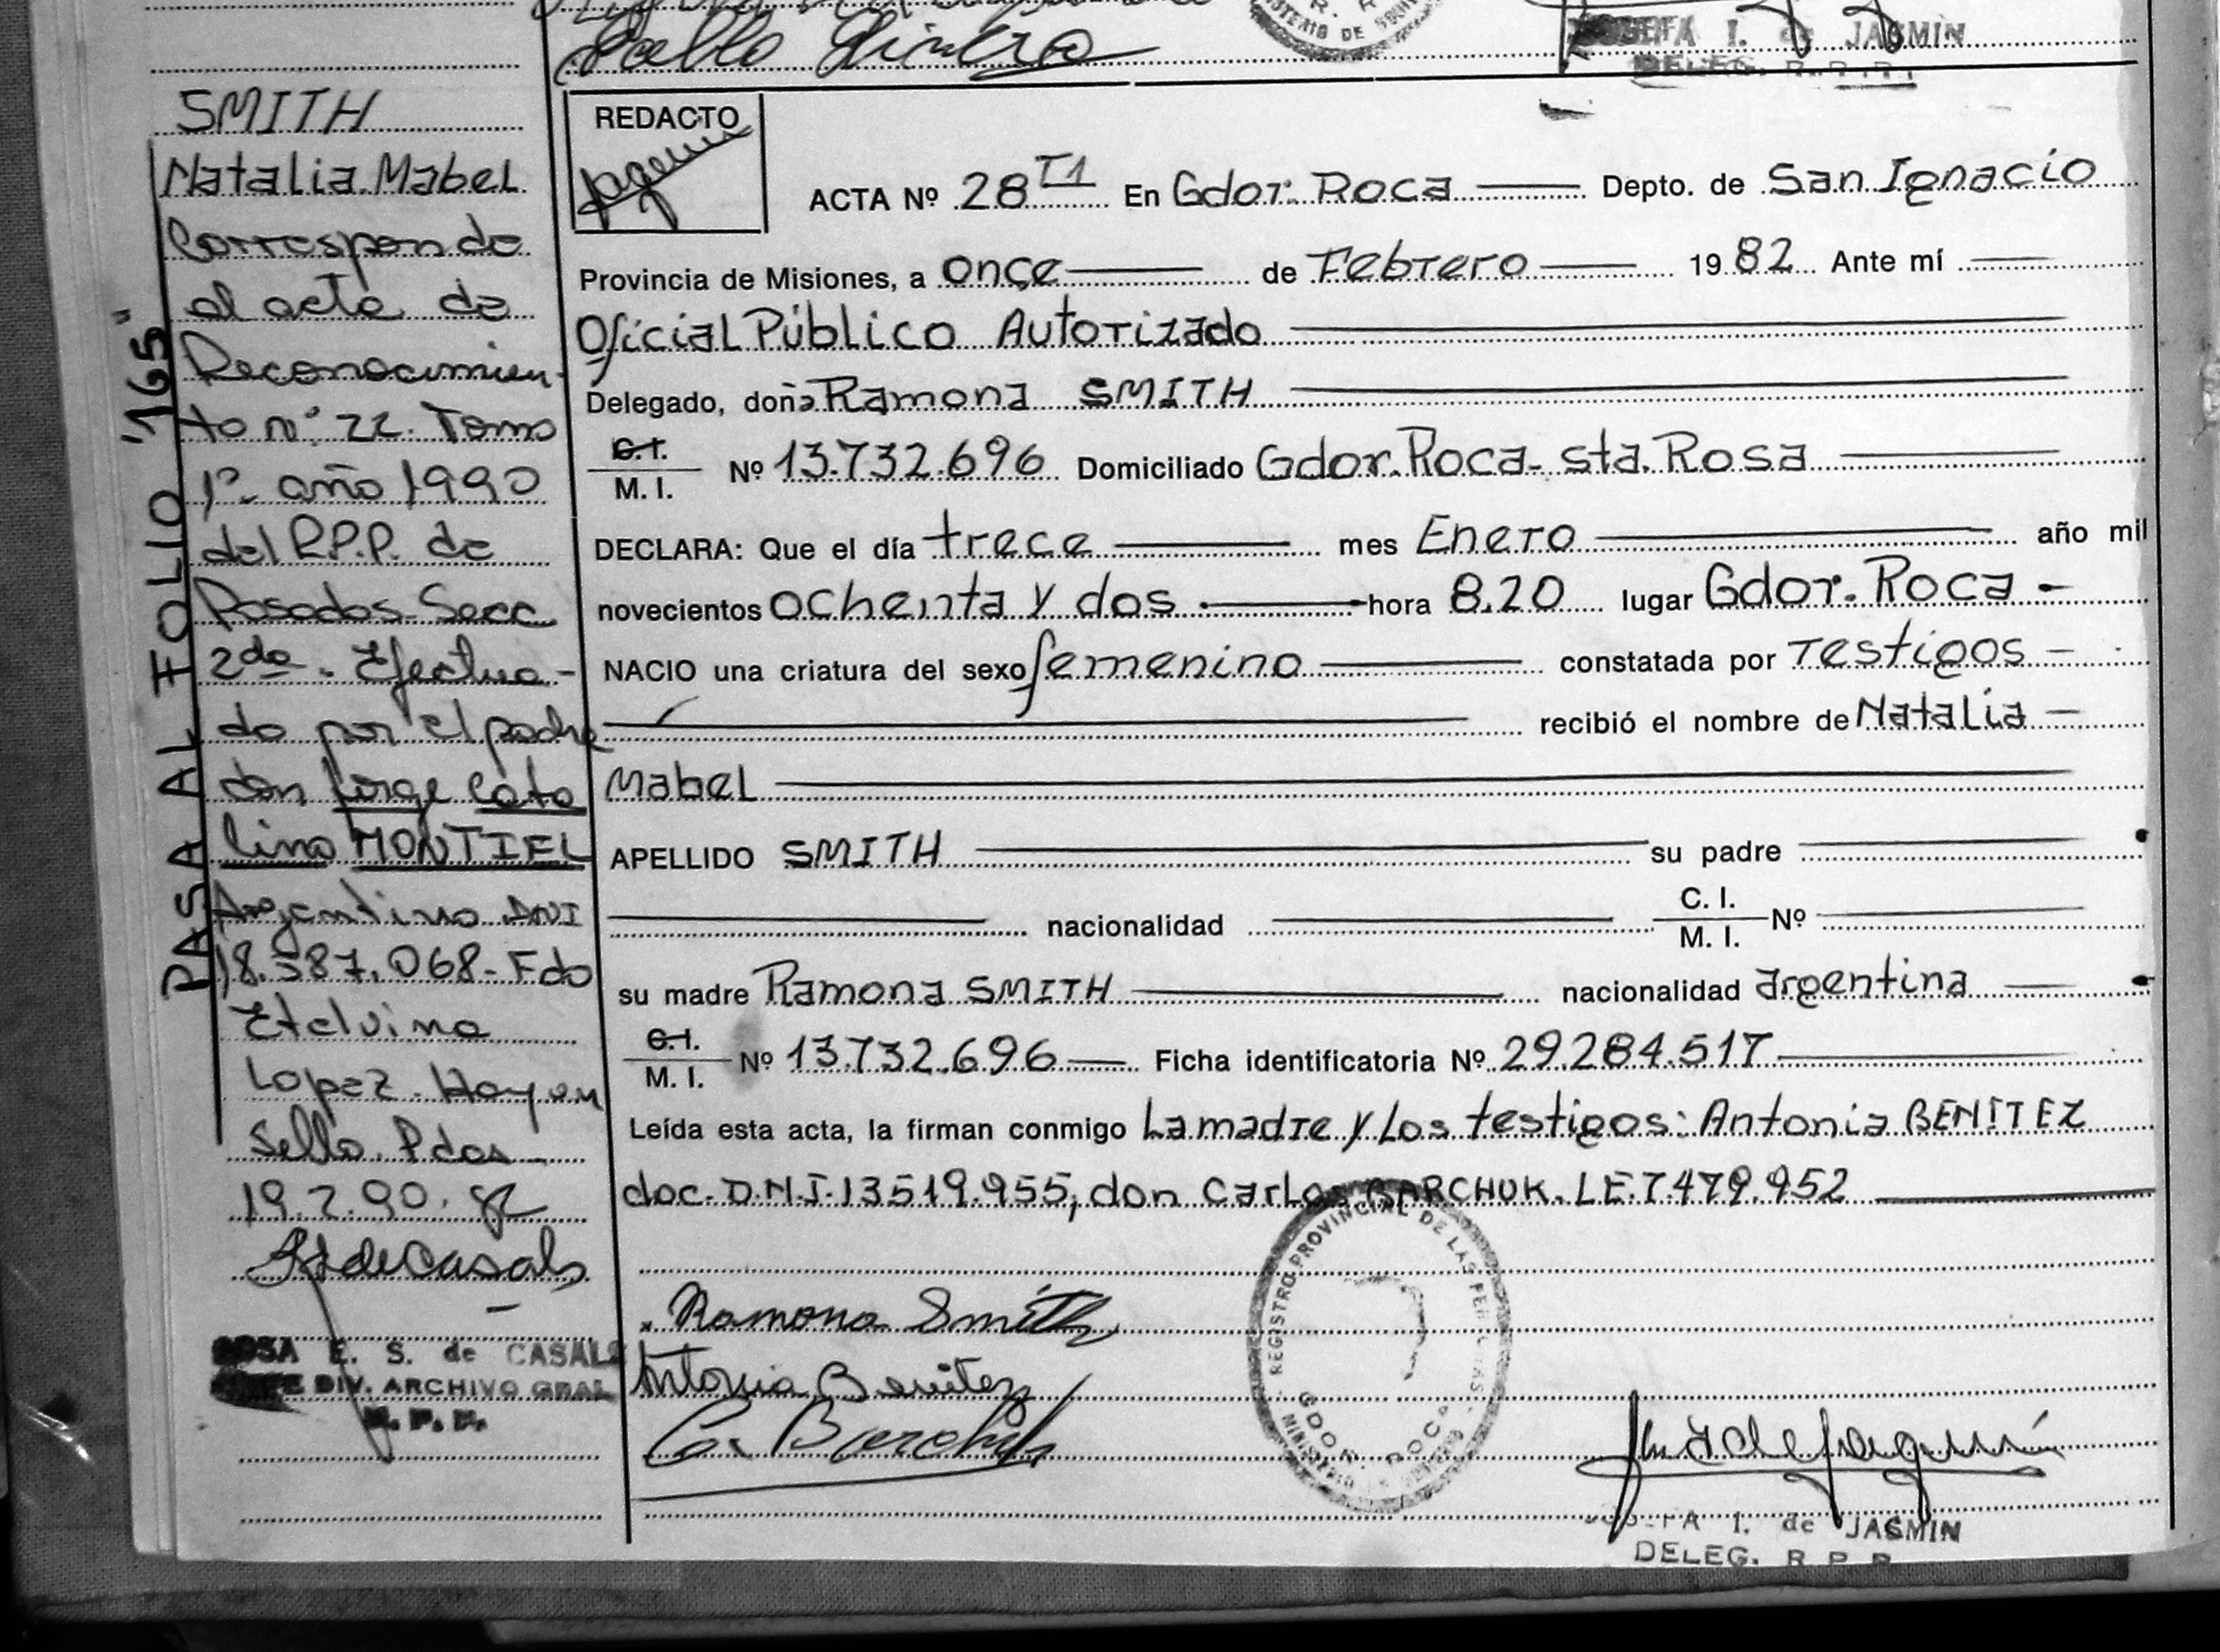 Sello
I. de JASMIN
DELEG. R.P.P.
SMITH
Natalia Mabel
Corresponde
al acta de
Reconocimien-
to nº 22. Tomo
1º año 1990
del R.P.P. de
Posadas Secc.
2da. Efectua-
do por el padre
don Jorge Cata
lino MONTIEL
Argentino DNI
18.587.068- Fdo
Etelvina
Lopez. Hay un
Sello. Pdas
19.2.90.
R de Casals
ROSA E. S. de CASALS
JEFE DIV. ARCHIVO GRAL
R. P. P.
PASA AL FOLIO "165"
REDACTO
ACTA Nº 28 T1 En Gdor. Roca Depto. de San Ignacio
Provincia de Misiones, a once de Febrero 1982 Ante mí
Oficial Público Autorizado
Delegado, doña Ramona SMITH
C.I. M. I. Nº 13.732.696 Domiciliado Gdor. Roca- sta. Rosa
DECLARA: Que el día trece mes Enero año mil
novecientos ochenta y dos hora 8.20 lugar Gdor. Roca -
NACIO una criatura del sexo femenino constatada por Testigos -
recibió el nombre de Natalia -
Mabel
APELLIDO SMITH su padre
nacionalidad C. I. M. I. Nº
su madre Ramona SMITH nacionalidad argentina
C.I. M. I. Nº 13.732.696 Ficha identificatoria Nº 29.284.517
Leída esta acta, la firman conmigo La madre y Los testigos: Antonia BENITEZ
doc. D.N.I. 13519.955, don Carlos BARCHUK. LE.7.479.952
Ramona Smith
Antonia Benitez
REGISTRO PROVINCIAL DE LAS PERSONAS
GDOR. ROCA
MINISTERIO DE GOBIERNO
I. de JASMIN
DELEG. R P P